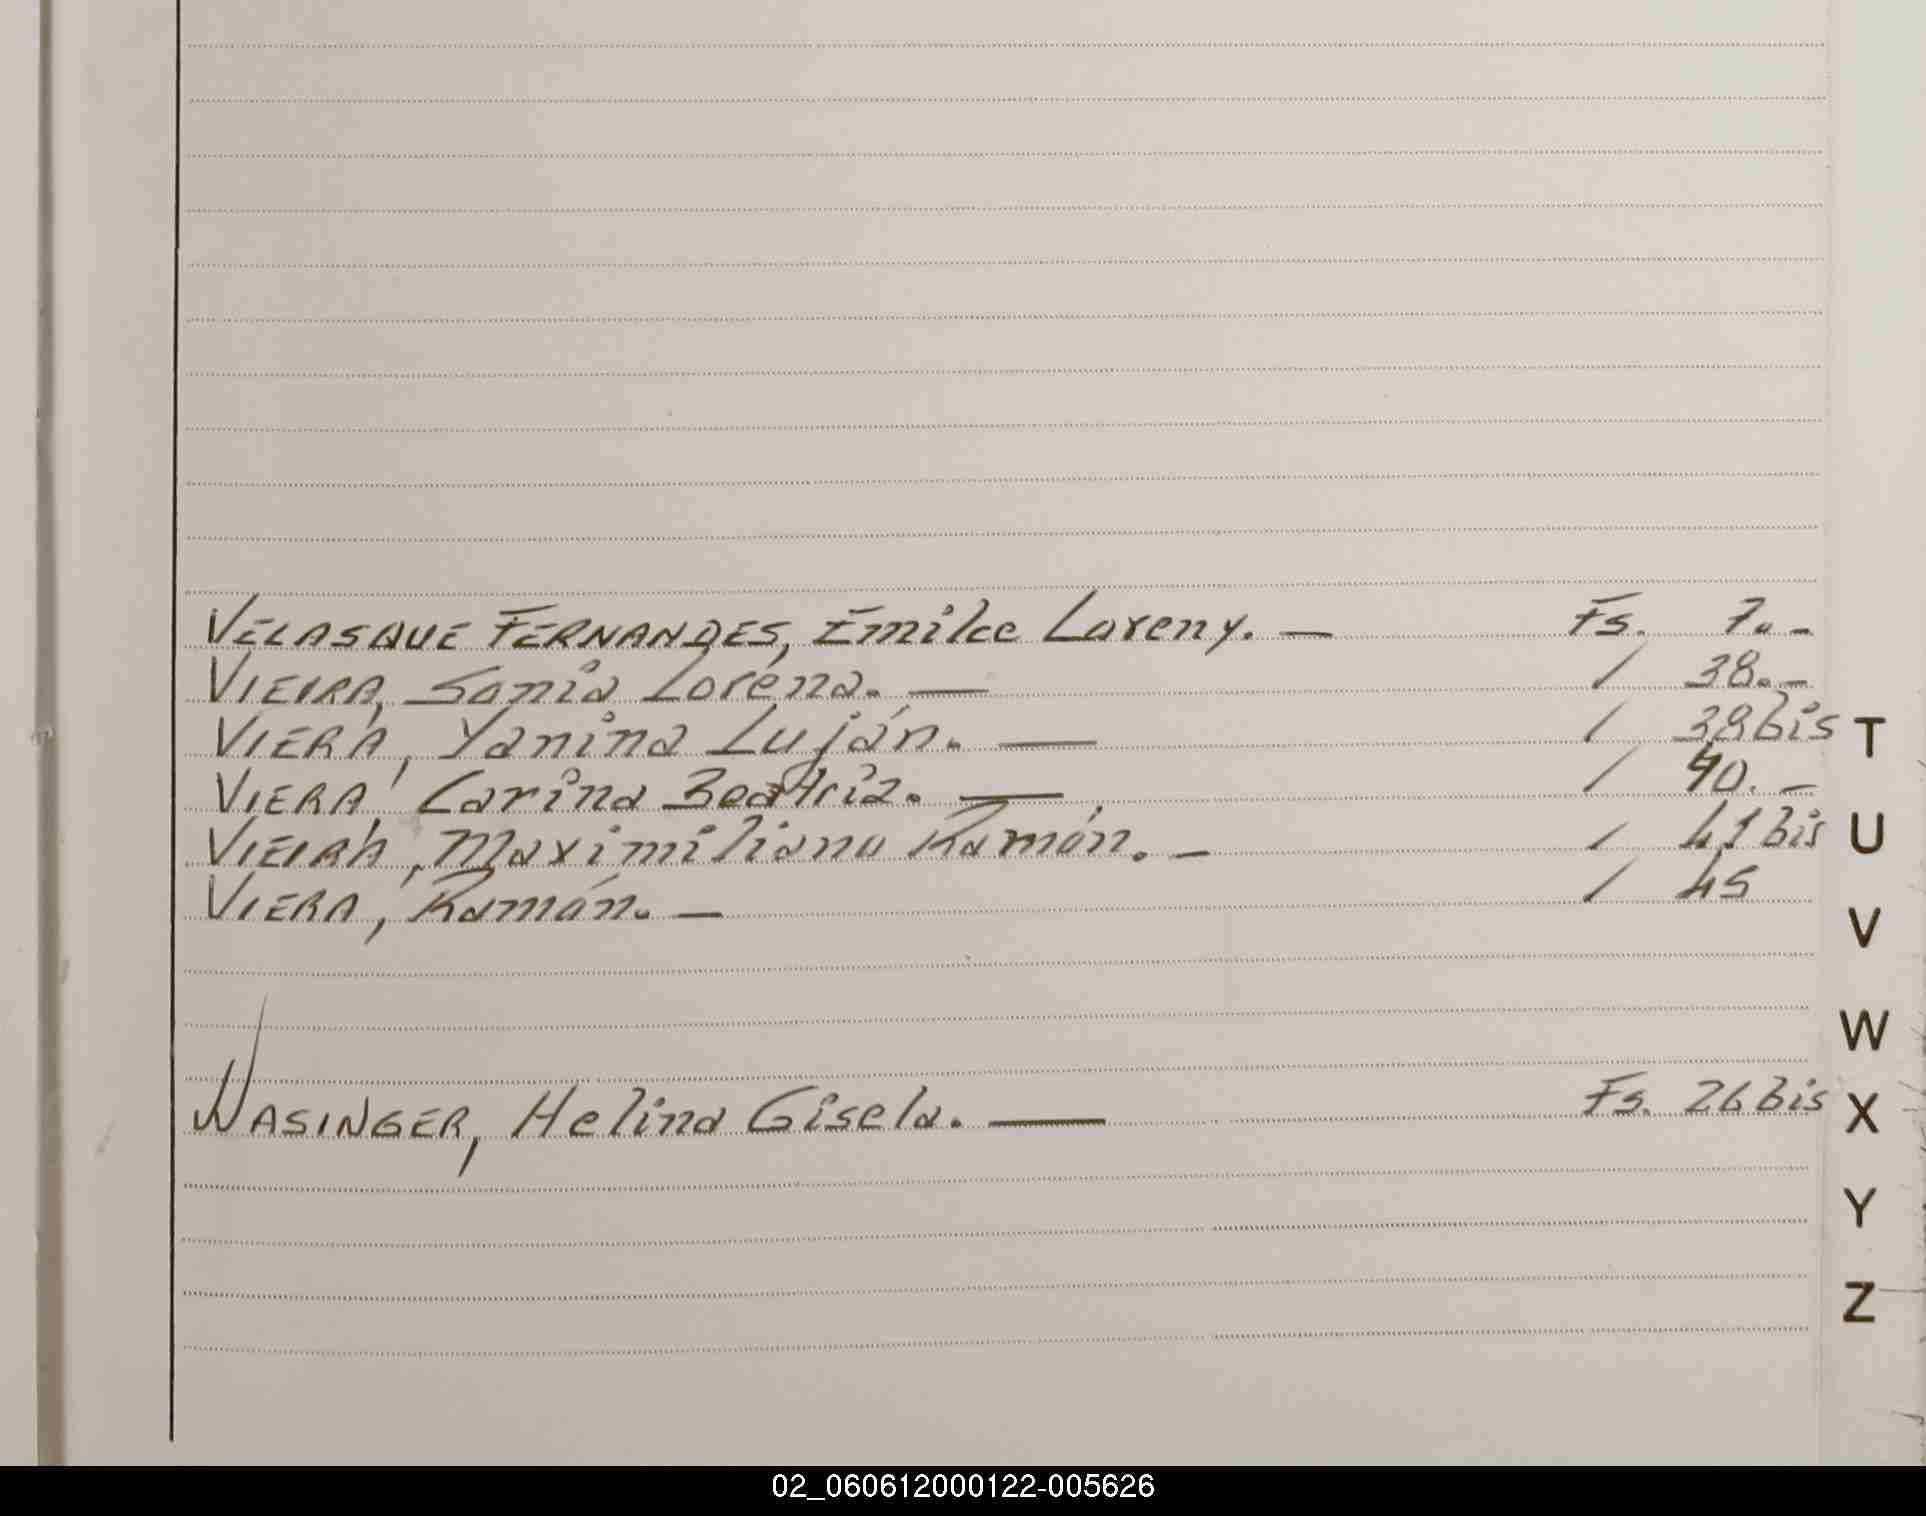 VELASQUE FERNANDES, Emilce Loreny. — Fs. 7.. -
VIEIRA, Sonia Lorena. — / 38. -
VIERA, Yanina Luján. — / 39 bis
VIERA, Carina Beatriz. — / 40. -
VIEIRA, Maximiliano Ramón. — / 41 bis
VIERA, Ramón. — / 45
WASINGER, Helina Gisela. — Fs. 26 bis
T
U
V
W
X
Y
Z
02_060612000122-005626